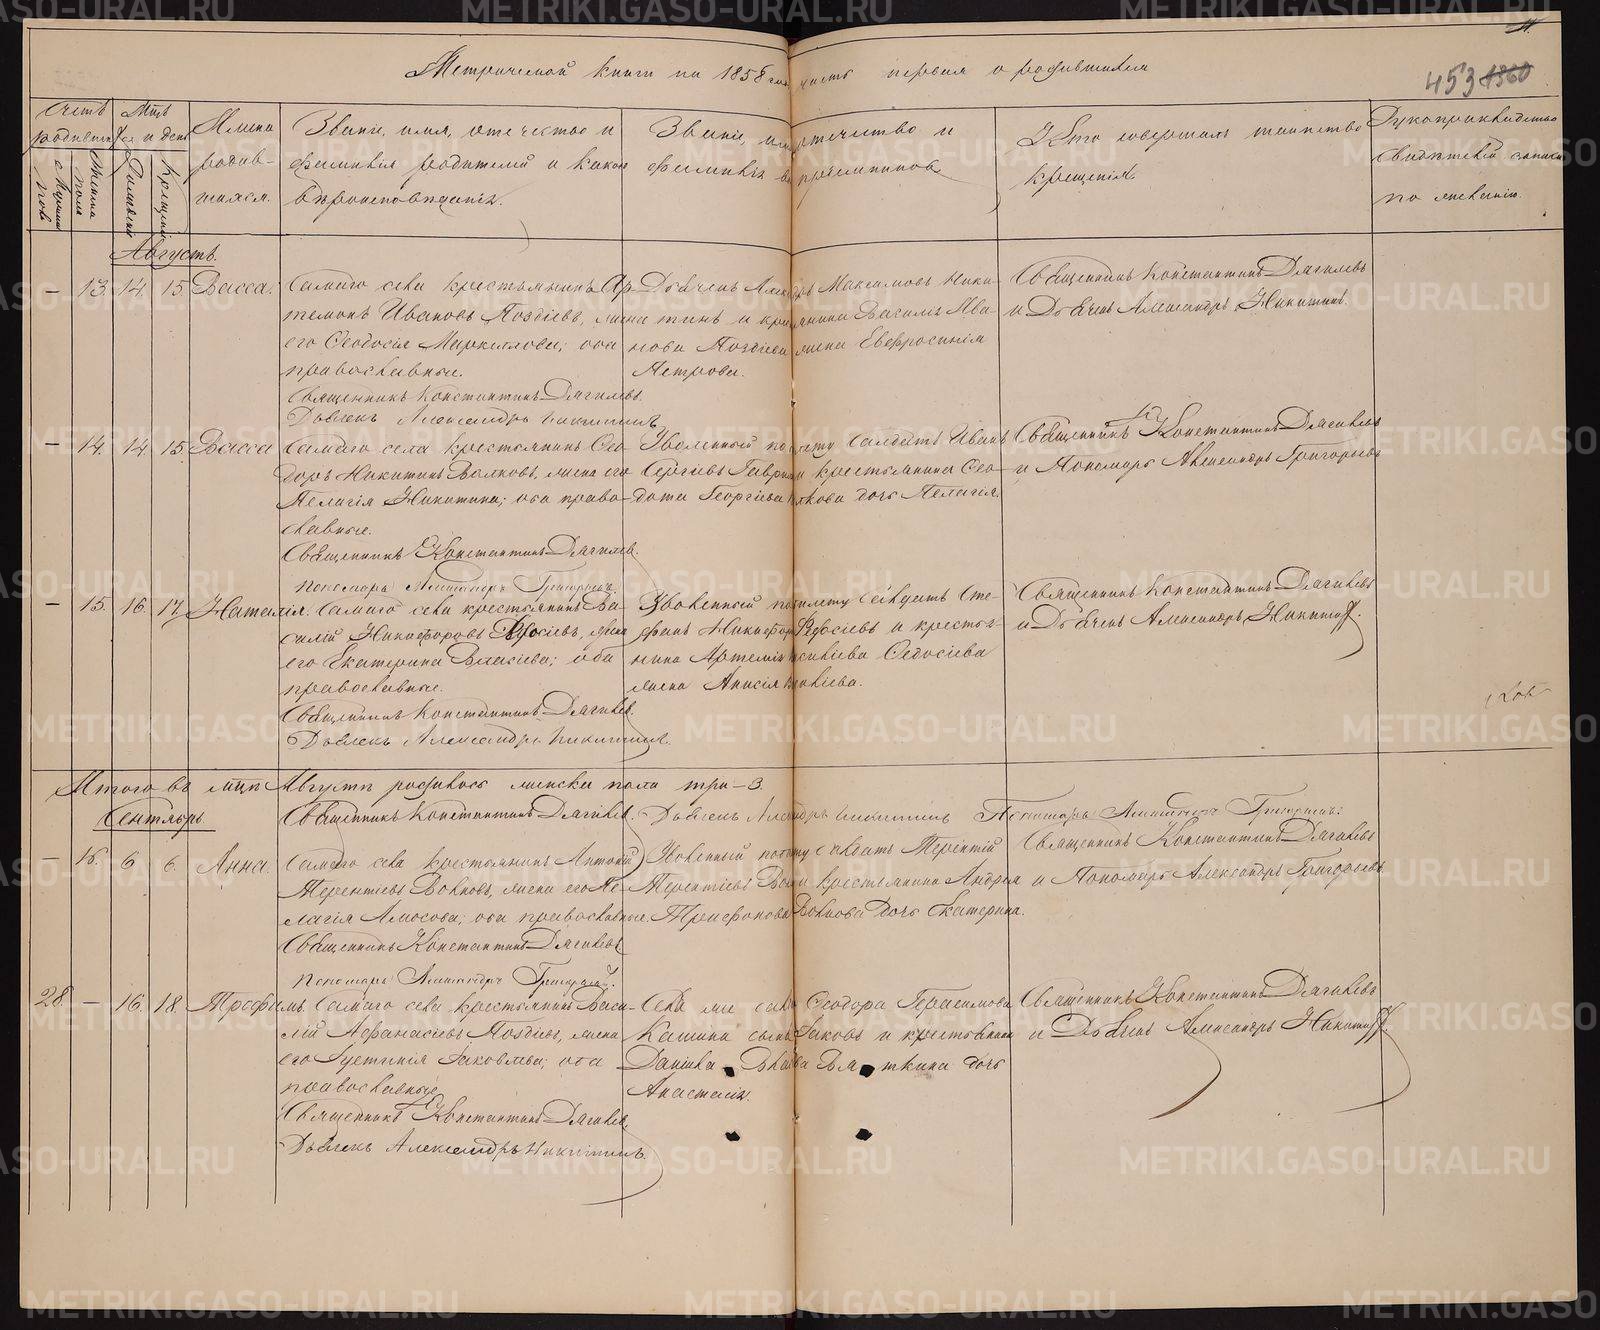 Метрической книги на 1858 годъ часть первая о родившихся
453 1360
Счетъ родившихся
Мцъ и день
Имена родившихся.
Званіе, имя, отечество и фамилія родителей и какого вѣроисповѣданія.
Званіе, имя, отечество и фамилія воспріемниковъ
Кто совершалъ таинство крещенія
Рукоприкладство свидѣтелей записи по желанію.
Мужеска пола
Женска пола
Рожденія
Крещенія
Августъ.
— 13. 14. 15. Васса.
Самаго села крестьянинъ Ар-
темонъ Ивановъ Поздѣевъ, жена
его Ѳеодосія Маркеллова; оба
православные.
Священникъ Константинъ Дягилевъ.
Дьячекъ Александръ Никитинъ.
Дьячекъ Александръ Максимовъ Ники-
тинъ и крестьянина Василія Ива-
нова Поздѣева жена Евфросинія
Петрова.
Священникъ Константинъ Дягилевъ
и Дьячекъ Александръ Никитинъ.
— 14. 14. 15. Васса
Самаго села крестьянинъ Ѳео-
доръ Никитинъ Волковъ, жена его
Пелагія Никитина; оба право-
славные.
Священникъ Константинъ Дягилев.
Пономарь Александръ Григорьевъ.
Уволенный по билету Солдатъ Иванъ
Сергѣевъ и крестьянина Ѳео-
дота Георгіева Волкова дочь Пелагія.
Священникъ Константинъ Дягилевъ
и Пономарь Александръ Григорьевъ
— 15. 16. 17. Наталія.
Самаго села крестьянинъ Ва-
силій Никифоровъ Ѳедосіевъ, жена
его Екатерина Власіева; оба
православные.
Священникъ Константинъ Дягилев.
Дьячекъ Александръ Никитинъ.
Уволенный по билету Солдатъ Сте-
фанъ Никифоровъ Ѳедосіевъ и крестья-
нина Артемія Ѳедосіева
жена Анисія
Священникъ Константинъ Дягилевъ
и Дьячекъ Александръ Никитинъ.
Итого въ мцѣ Августѣ родилось женска пола три — 3.
Священникъ Константинъ Дягилев. Дьячекъ Александръ Никитинъ Пономарь Александръ Григорьевъ.
Сентябрь
— 16. 6 6. Анна.
Самаго села крестьянинъ Антоній
Терентіевъ Волковъ, жена его Пе-
лагія Амосова; оба православные.
Священникъ Константинъ Дягилевъ
Пономарь Александръ Григорьевъ.
Уволенный по билету Солдатъ Терентій
Терентіевъ и крестьянина Андрея
Трифонова Волкова дочь Екатерина.
Священникъ Константинъ Дягилевъ
и Пономарь Александръ Григорьевъ.
28 — 16. 18. Трофимъ.
Самаго села крестьянинъ Васи-
лій Афанасіевъ Поздѣевъ, жена
его Іустинія Іаковлева; оба
православные
Священникъ Константинъ Дягилев.
Дьячекъ Александръ Никитинъ.
Села Ѳеодора Герасимова
Кашина сынъ Іаковъ и крестьянина
Данила дочь
Анастасія.
Священникъ Константинъ Дягилевъ
и Дьячекъ Александръ Никитинъ.
METRIKI.GASO-URAL.RU